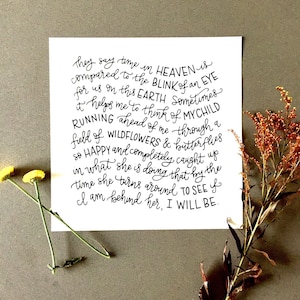 they say time in HEAVEN is
compared to the BLINK of an EYE
for us on this EARTH Sometimes
it helps me to think of MY CHILD
RUNNING ahead of me through a
field of WILDFLOWERS & butterflies
so HAPPY and completely caught up
in what she is doing that by the
time she turns around TO SEE if
I am behind her, I WILL BE.